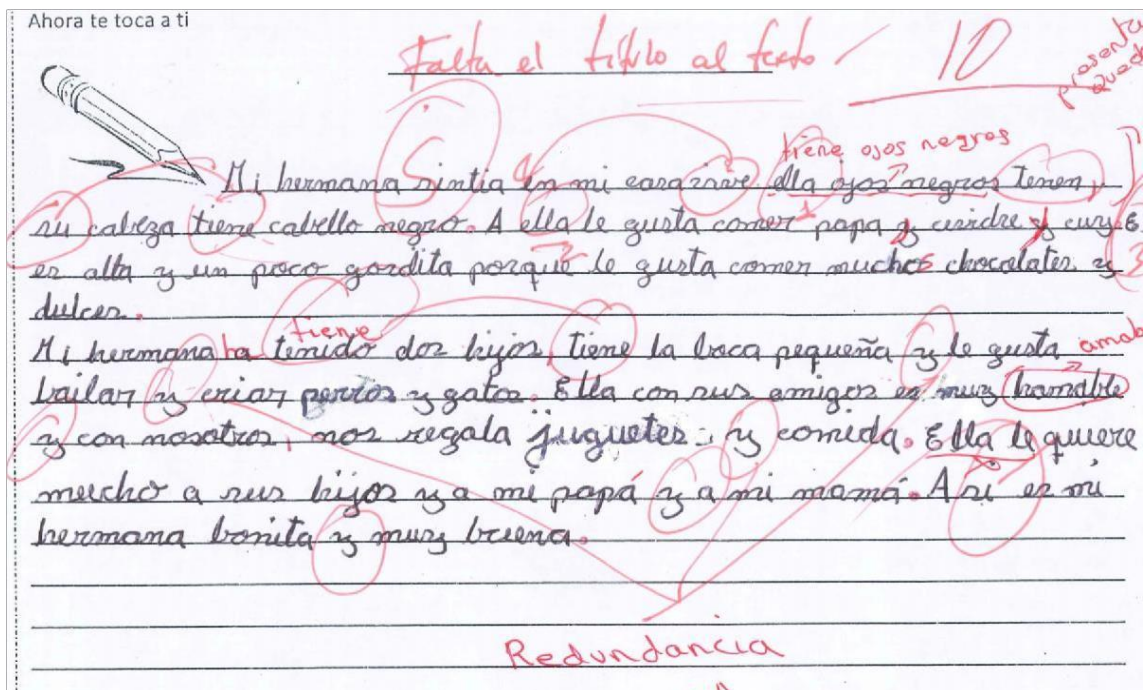 Ahora te toca a ti
Falta el título al texto 10
tiene ojos negros
Mi hermana sintia en mi casa vive ella ojos negros tenen,
su cabeza tiene cabello negro. A ella le gusta comer papa y y cuy. E
es alta y un poco gordita porque le gusta comer muchos chocolates y
dulces.
tiene
Mi hermana ha tenido dos hijos, tiene la boca pequeña y le gusta
bailar y criar perros y gatos. Ella con sus amigos es muy hamable
y con nosotros, nos regala juguetes y comida. Ella le quiere
mucho a sus hijos y a mi papá y a mi mamá. Asi es mi
hermana bonita y muy buena.
Redundancia